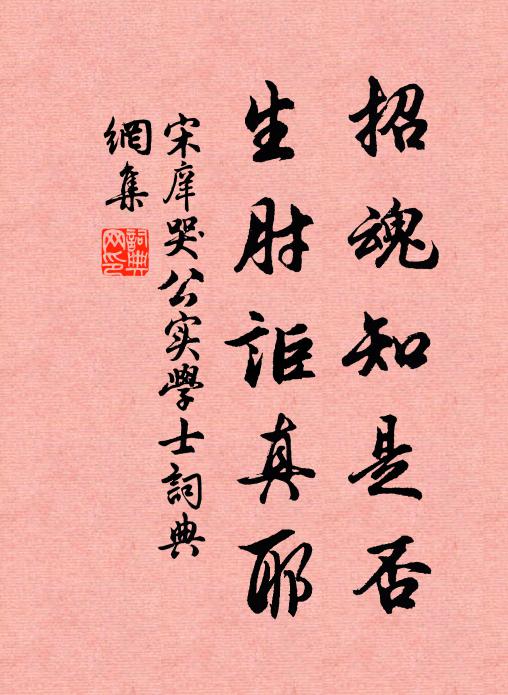 招魂知是否
生肘詎真耶
宋庠哭公实學士詞典
網集
詞典網印